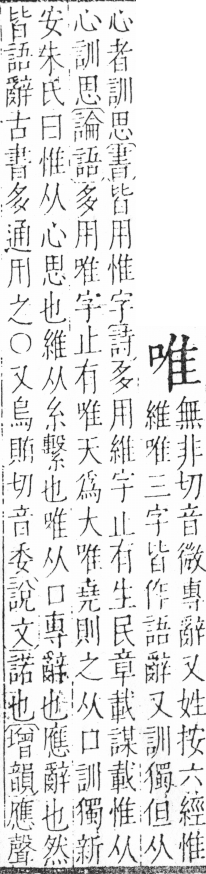 唯無非切音微專辭又姓按六經惟
維唯三字皆作語辭又訓獨但从
心者訓思書皆用惟字詩多用維字止有生民章載謀載惟从
心訓思論語多用唯字止有唯天爲大唯堯則之从口訓獨新
安朱氏曰惟从心思也維从糸繫也唯从口專辭也應辭也然
皆語辭古書多通用之○又烏賄切音委說文諾也增韻應聲